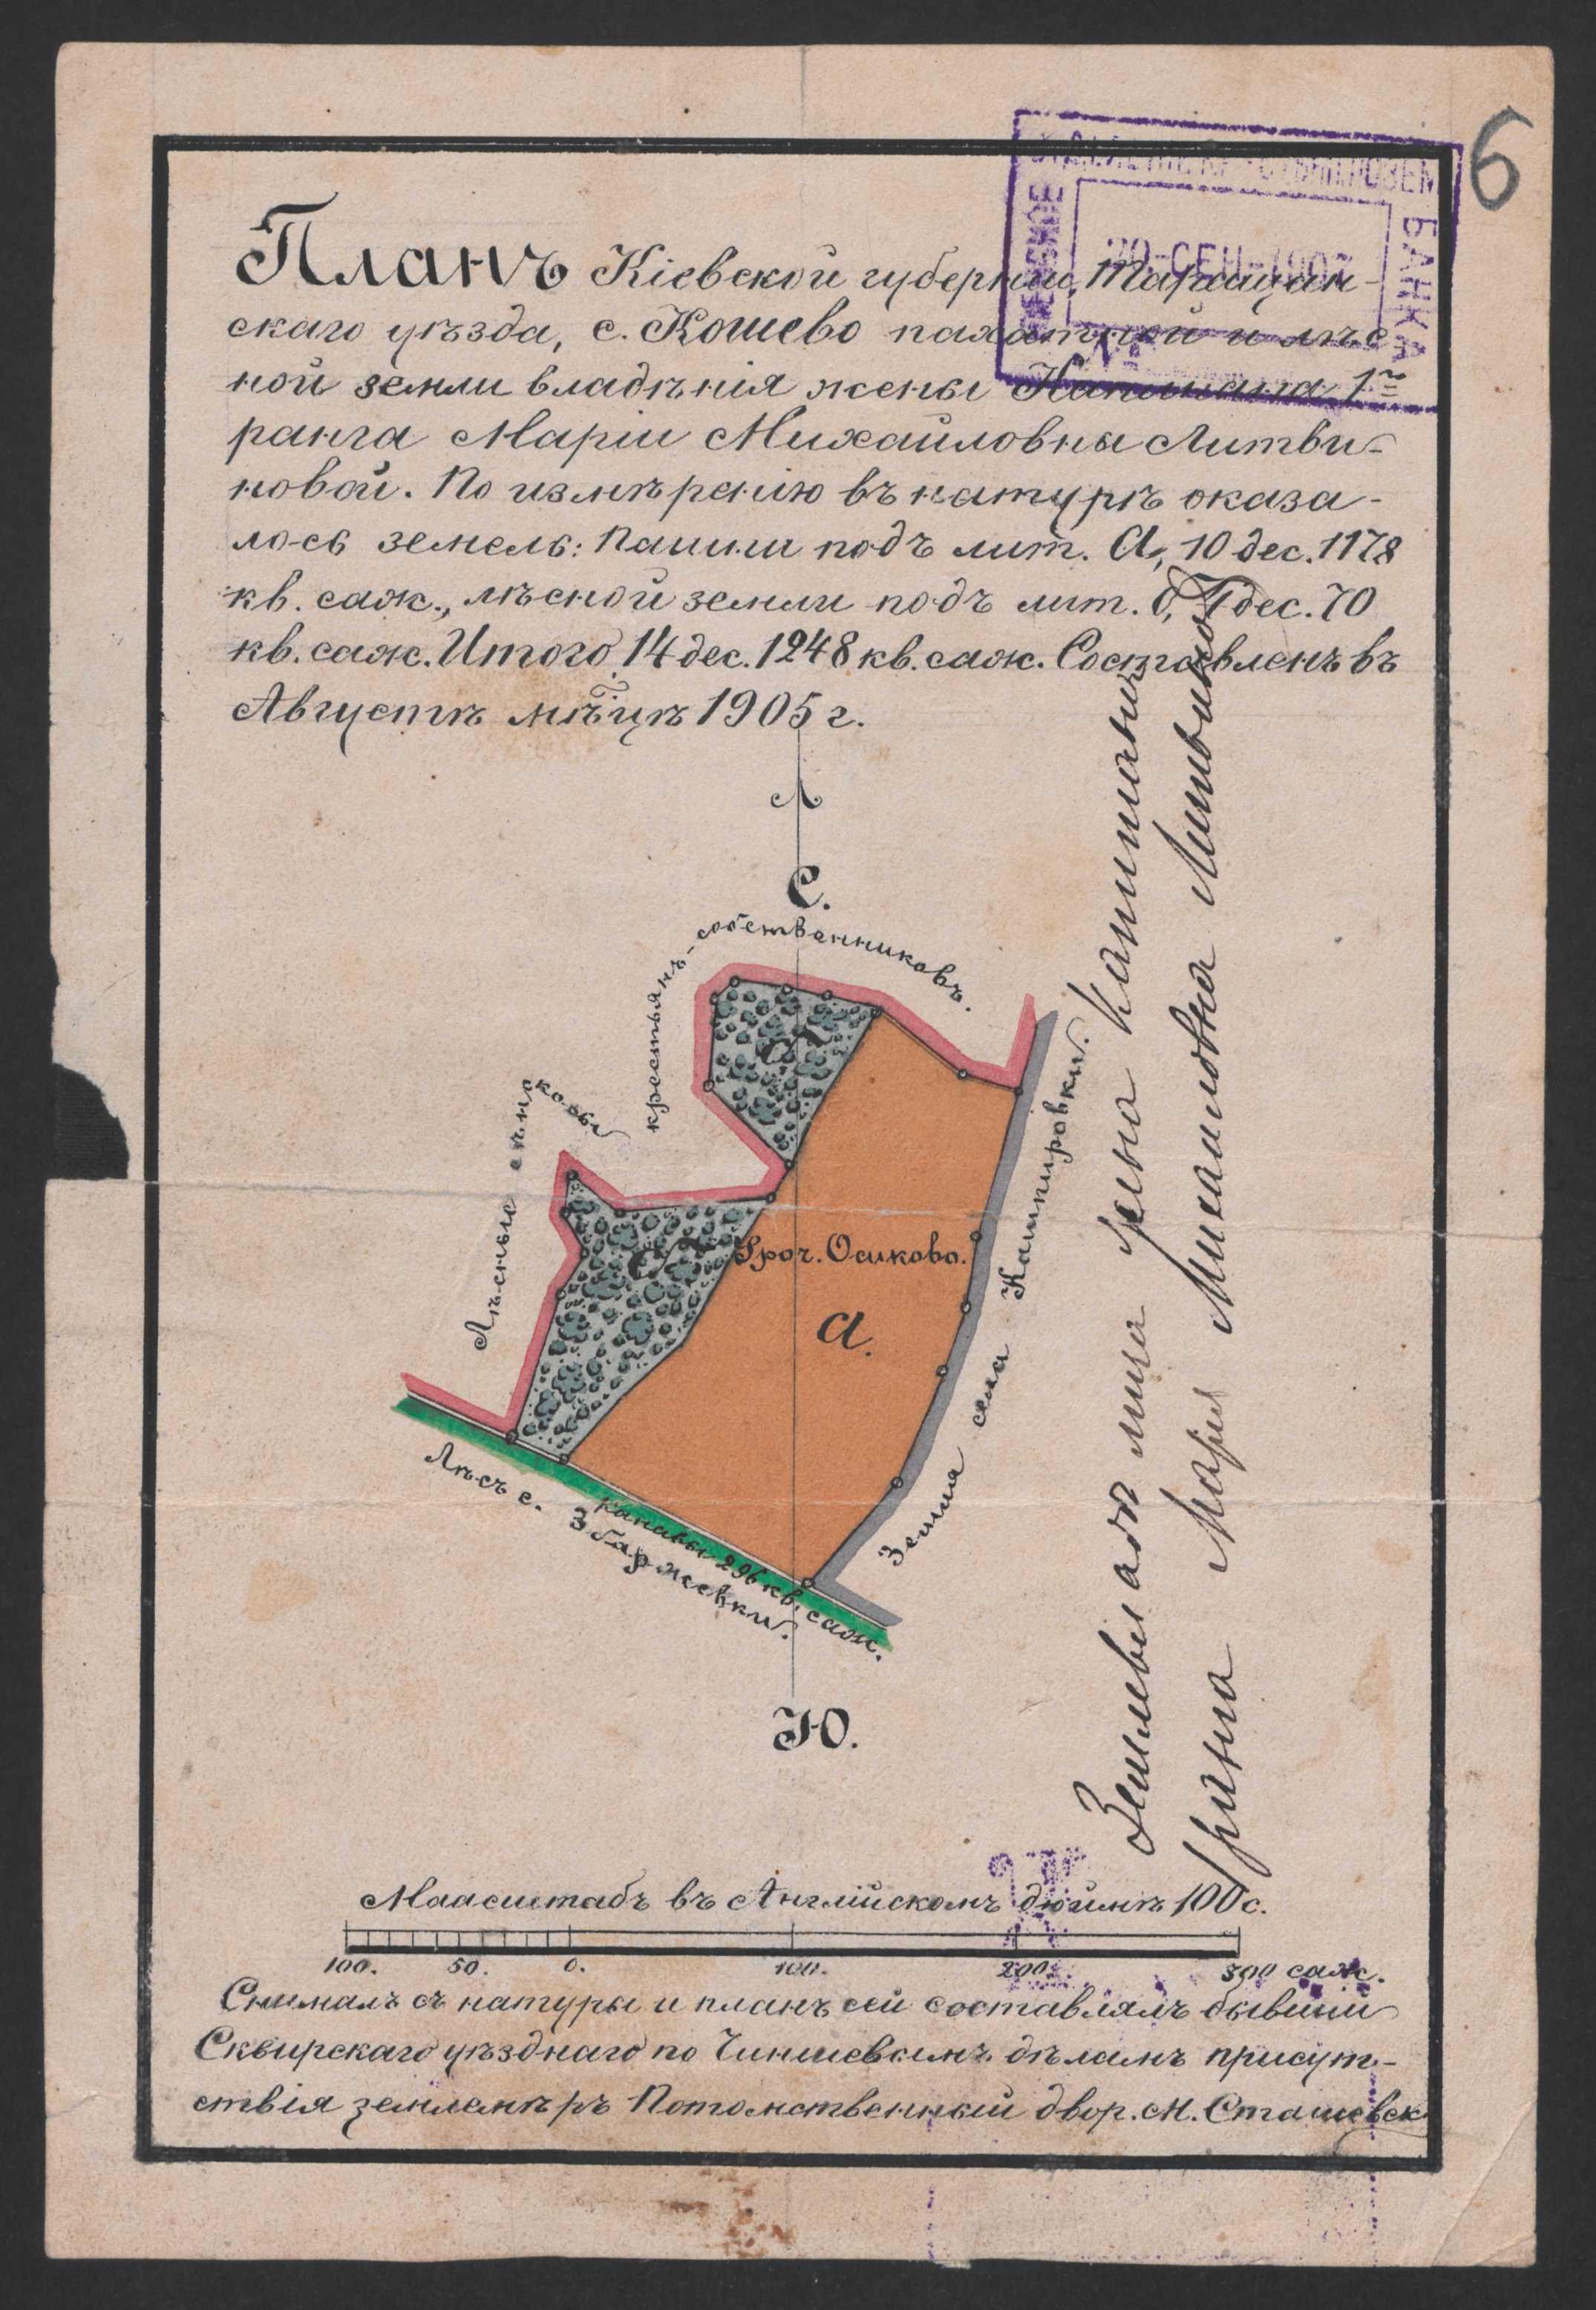 6
КІЕВСКОЕ ОТДѢЛЕНІЕ КРЕСТЬЯНСК. ПОЗЕМ. БАНКА
СЕН
№
Планъ Кіевской губерніи, Таращан-
скаго уѣзда, с. Кошево пахатной и лѣс-
ной земли владѣнія жены Капитана 1го
ранга Маріи Михайловны Литви-
новой. По измѣренію въ натурѣ оказа-
лось земель: Пашни подъ лит. а, 10 дес. 1178
кв. саж., лѣсной земли подъ лит. б, 4 дес. 70
кв. саж. Итого 14 дес. 1248 кв. саж. Составленъ въ
Августѣ мѣцѣ 1905 г.
С.
крестьянъ-собственниковъ.
Лѣсные сѣнокосы
Уроч. Осиково.
а.
Земля села Кашпировки.
Лѣсъ с. Збаржевки.
канавы 296 кв. саж.
Ю.
Землевладѣлица Жена Капитана
Мария Михаиловна Литвинова
Маасштабъ въ Англійскомъ дюймѣ 100 с.
100. 50. 0. 100. 200. 300 саж.
Снималъ съ натуры и планъ сей составлялъ бывшій
Сквирскаго уѣзднаго по Чиншевымъ дѣламъ присут-
ствія землемѣръ Потомственный двор. М. Сташевск